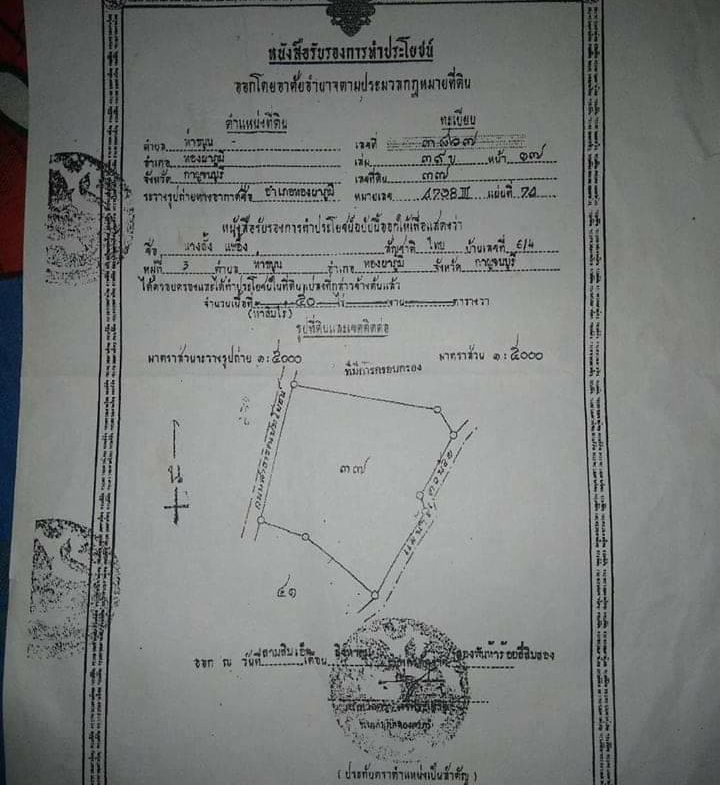 หนังสือรับรองการทำประโยชน์
ออกโดยอาศัยอำนาจตามประมวลกฎหมายที่ดิน
ตำแหน่งที่ดิน
ทะเบียน
ตำบล ท่าขนุน
เลขที่ ๓๘๖๗
อำเภอ ทองผาภูมิ
เล่ม ๓๙ข หน้า ๑๗
จังหวัด กาญจนบุรี
เลขที่ดิน ๓๗
ระวางรูปถ่ายทางอากาศชื่อ อำเภอทองผาภูมิ
หมายเลข 4738 III แผ่นที่ 70
หนังสือรับรองการทำประโยชน์ฉบับนี้ออกให้เพื่อแสดงว่า
ชื่อ สัญชาติ ไทย บ้านเลขที่ 6/4
หมู่ที่ 3 ตำบล ท่าขนุน อำเภอ ทองผาภูมิ จังหวัด กาญจนบุรี
ได้ครอบครองและได้ทำประโยชน์ในที่ดินแปลงที่กล่าวข้างต้นแล้ว
จำนวนเนื้อที่ ๕๐ ไร่ งาน ตารางวา
(ห้าสิบไร่)
รูปที่ดินและเขตติดต่อ
มาตราส่วนระวางรูปถ่าย ๑:๕๐๐๐
มาตราส่วน ๑:๕๐๐๐
ที่มีการครอบครอง
๓๗
๔๑
ออก ณ วันที่ สามสิบเอ็ด เดือน สิงหาคม สองพันห้าร้อยยี่สิบสอง
(ประทับตราตำแหน่งเป็นสำคัญ)